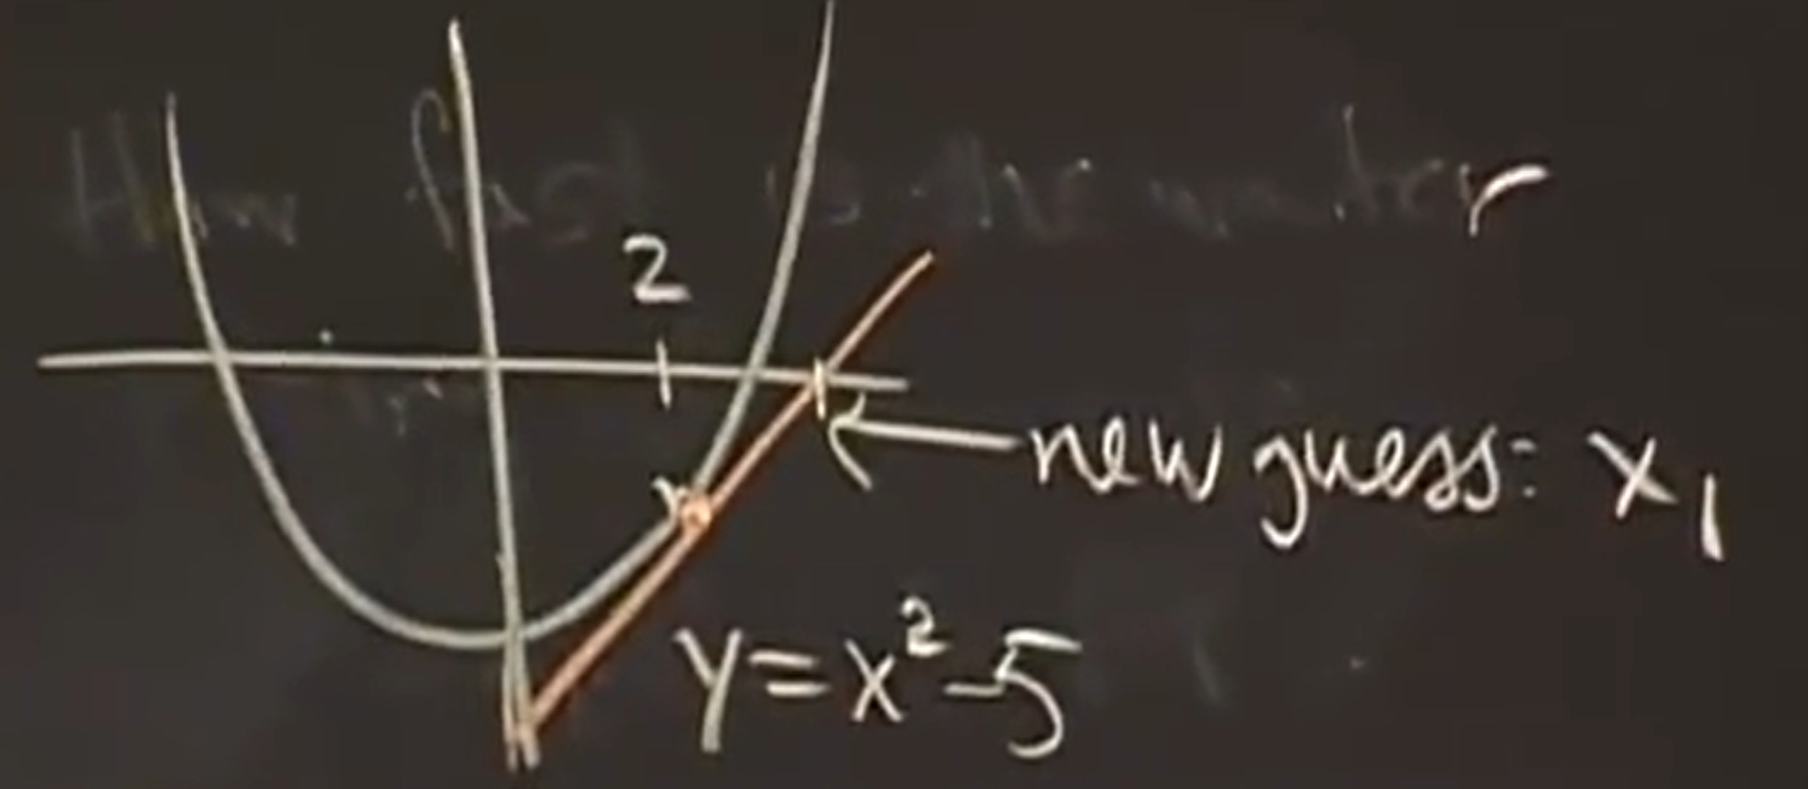 How fast is the water
2
new guess: x₁
y = x² - 5